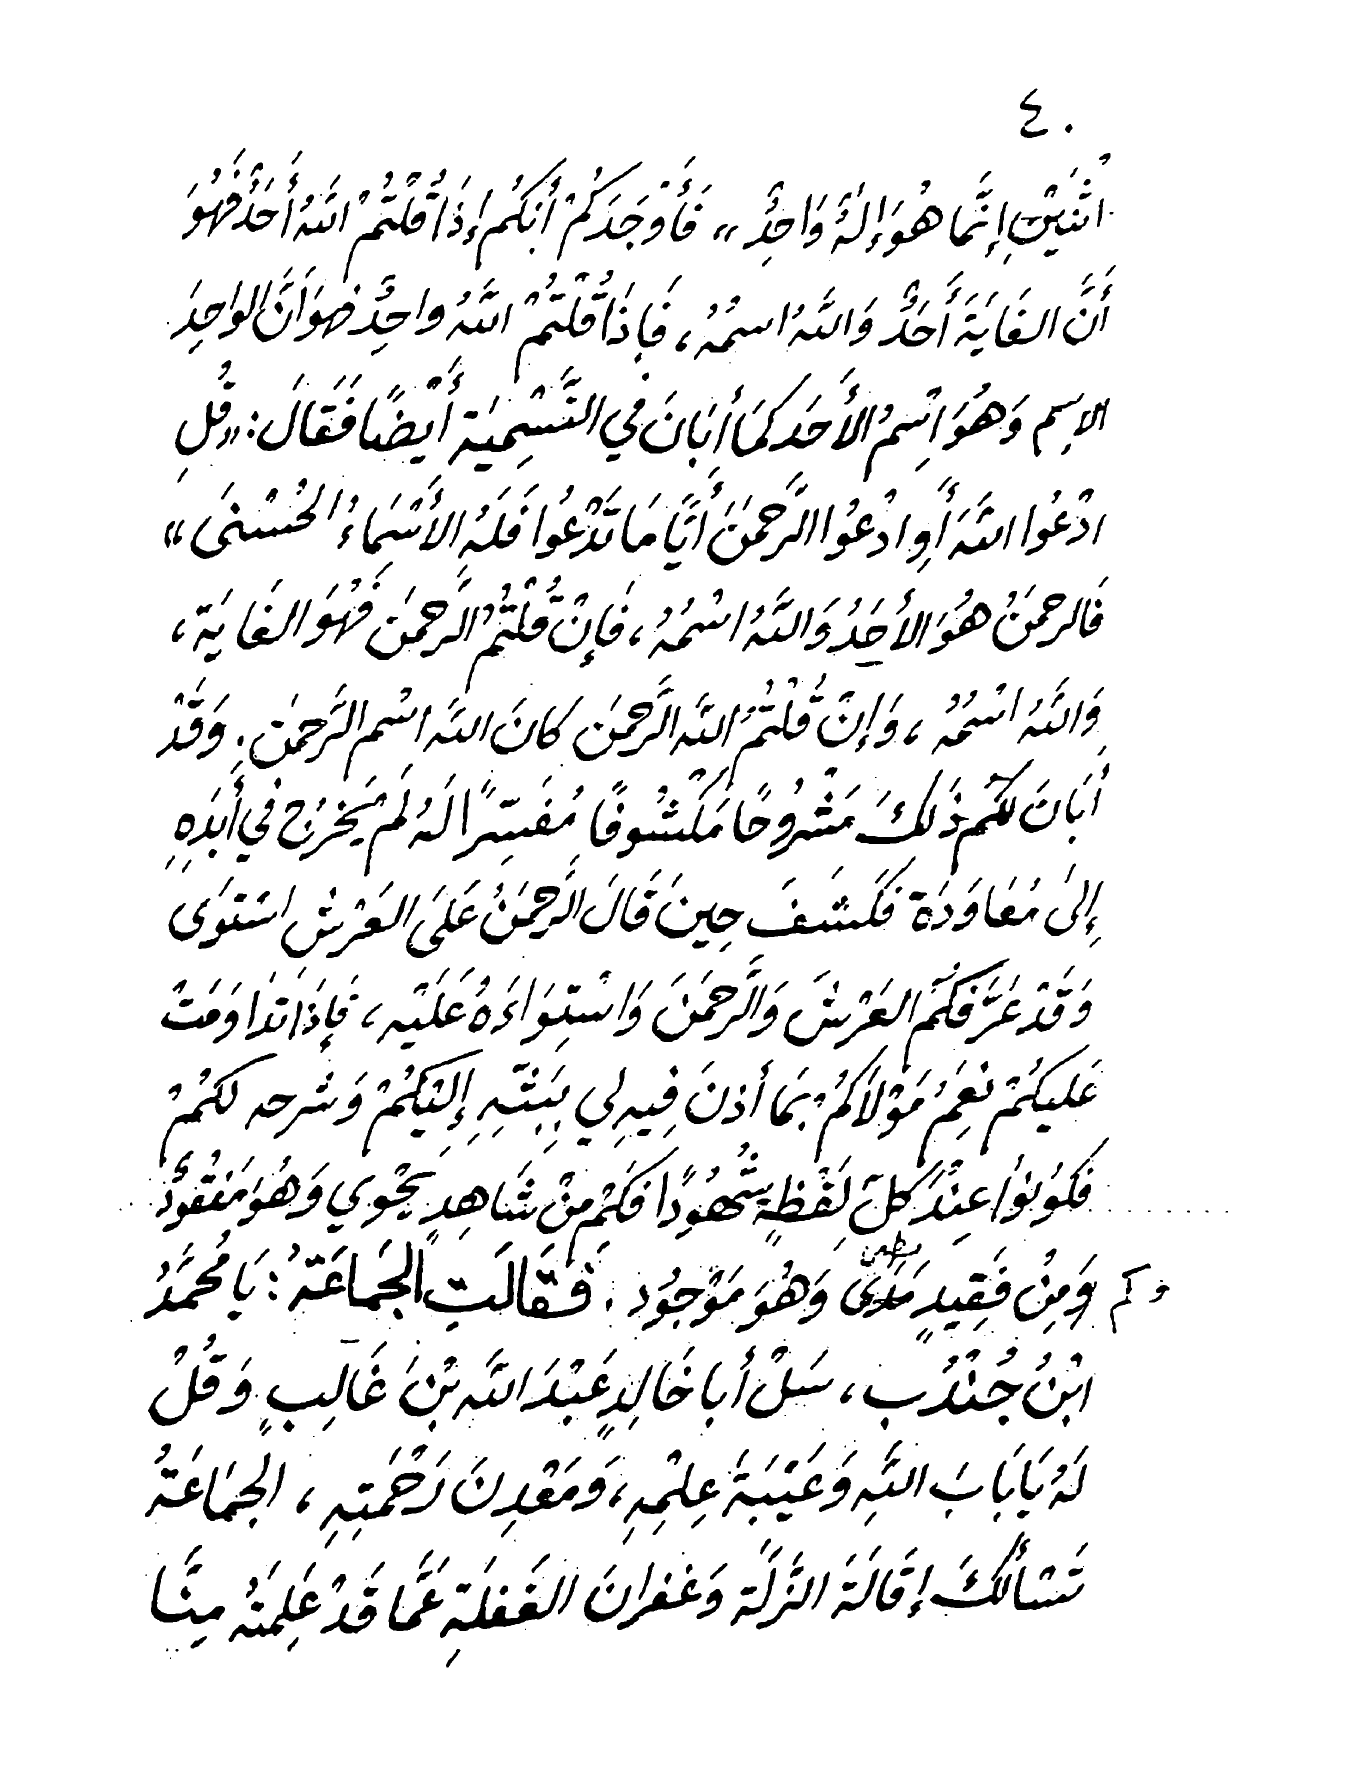 ٤٠
اثْنَيْنِ إِنَّمَا هُوَ إِلَهٌ وَاحِدٌ» فَأَوْجَدَكُمْ أَنَّكُم إِذَا قُلْتُمْ اللَّهُ أَحَدٌ فَهُوَ
أَنَّ الغَايَةَ أَحَدٌ وَاللَّهُ اسمُهُ، فَإِذَا قُلْتُمْ اللَّهُ واحِدٌ فهوَ أَنَّ الوَاحِدَ
الاِسِم وَهُوَ اسْمُ الأَحَد كَمَا أَبَانَ في التَّسْمِيَة أَيْضًا فَقَالَ: «قُلِ
ادْعُوا اللَّهَ أَوِ ادْعُوا الرَّحمَنَ أَيًّا مَا تَدْعُوا فَلَهُ الأَسْمَاءُ الحُسْنَى»
فَالرحمَنُ هُوَ الأَحَدُ وَاللَّهُ اسْمُهُ، فَإِنْ قُلْتُمْ الرَّحمَن فَهُوَ الغَايَة،
وَاللَّهُ اسْمُهُ، وَإِنْ قُلْتُمْ اللَّه الرَّحمَن كَانَ اللَّه اسْم الرَّحمَن. وَقَدْ
أَبَانَ لَكُم ذَلِكَ مَشْرُوحًا مَكْشُوفًا مُفَسِّرًا لَهُ لَمْ يَخرُج في أَبَدِهِ
إِلَى مُعَاوَدَة فَكَشَفَ حِينَ قَالَ الرَّحمَنُ عَلَى العَرْش اسْتَوَى
وَقَدْ عَرَّفَكُمْ العَرْشَ وَالرَّحمَنَ وَاسْتِوَاءَهُ عَلَيْهِ، فَإِذَا تَدَاوَمَتْ
عَلَيكُمْ نِعَمُ مَوْلاَكُمْ بِمَا أَذِنَ فِيهِ لِي بِبَثِّهِ إِلَيْكُمْ وَشَرحه لكُمْ
فَكُونُوا عِنْدَ كُلِّ لَفْظَةٍ شُهُودًا فَكَمْ مِنْ شَاهِدٍ يَحْوي وَهُوَ مَفْقُودٌ
وكم وَمِنْ فَقِيدٍ وَهُوَ مَوْجُود. فَقَالَتِ الجَمَاعَةُ: يَا مُحَمَّدُ
ابْنُ جُنْدُبٍ، سَلْ أَبا خَالِدٍ عَبْدَ اللَّه بْنَ غَالِبٍ وَقُلْ
لَهُ يَا بَابَ اللَّهِ وَعَيْبَةَ عِلْمِهِ، وَمَعْدِنَ رَحْمَتِهِ، الجَمَاعَةُ
تَسْأَلُكَ إِقَالَةَ الزَّلَّة وَغفرانَ الغَفلَةِ عَمَّا قَدْ عَلِمتَهُ مِنَّا